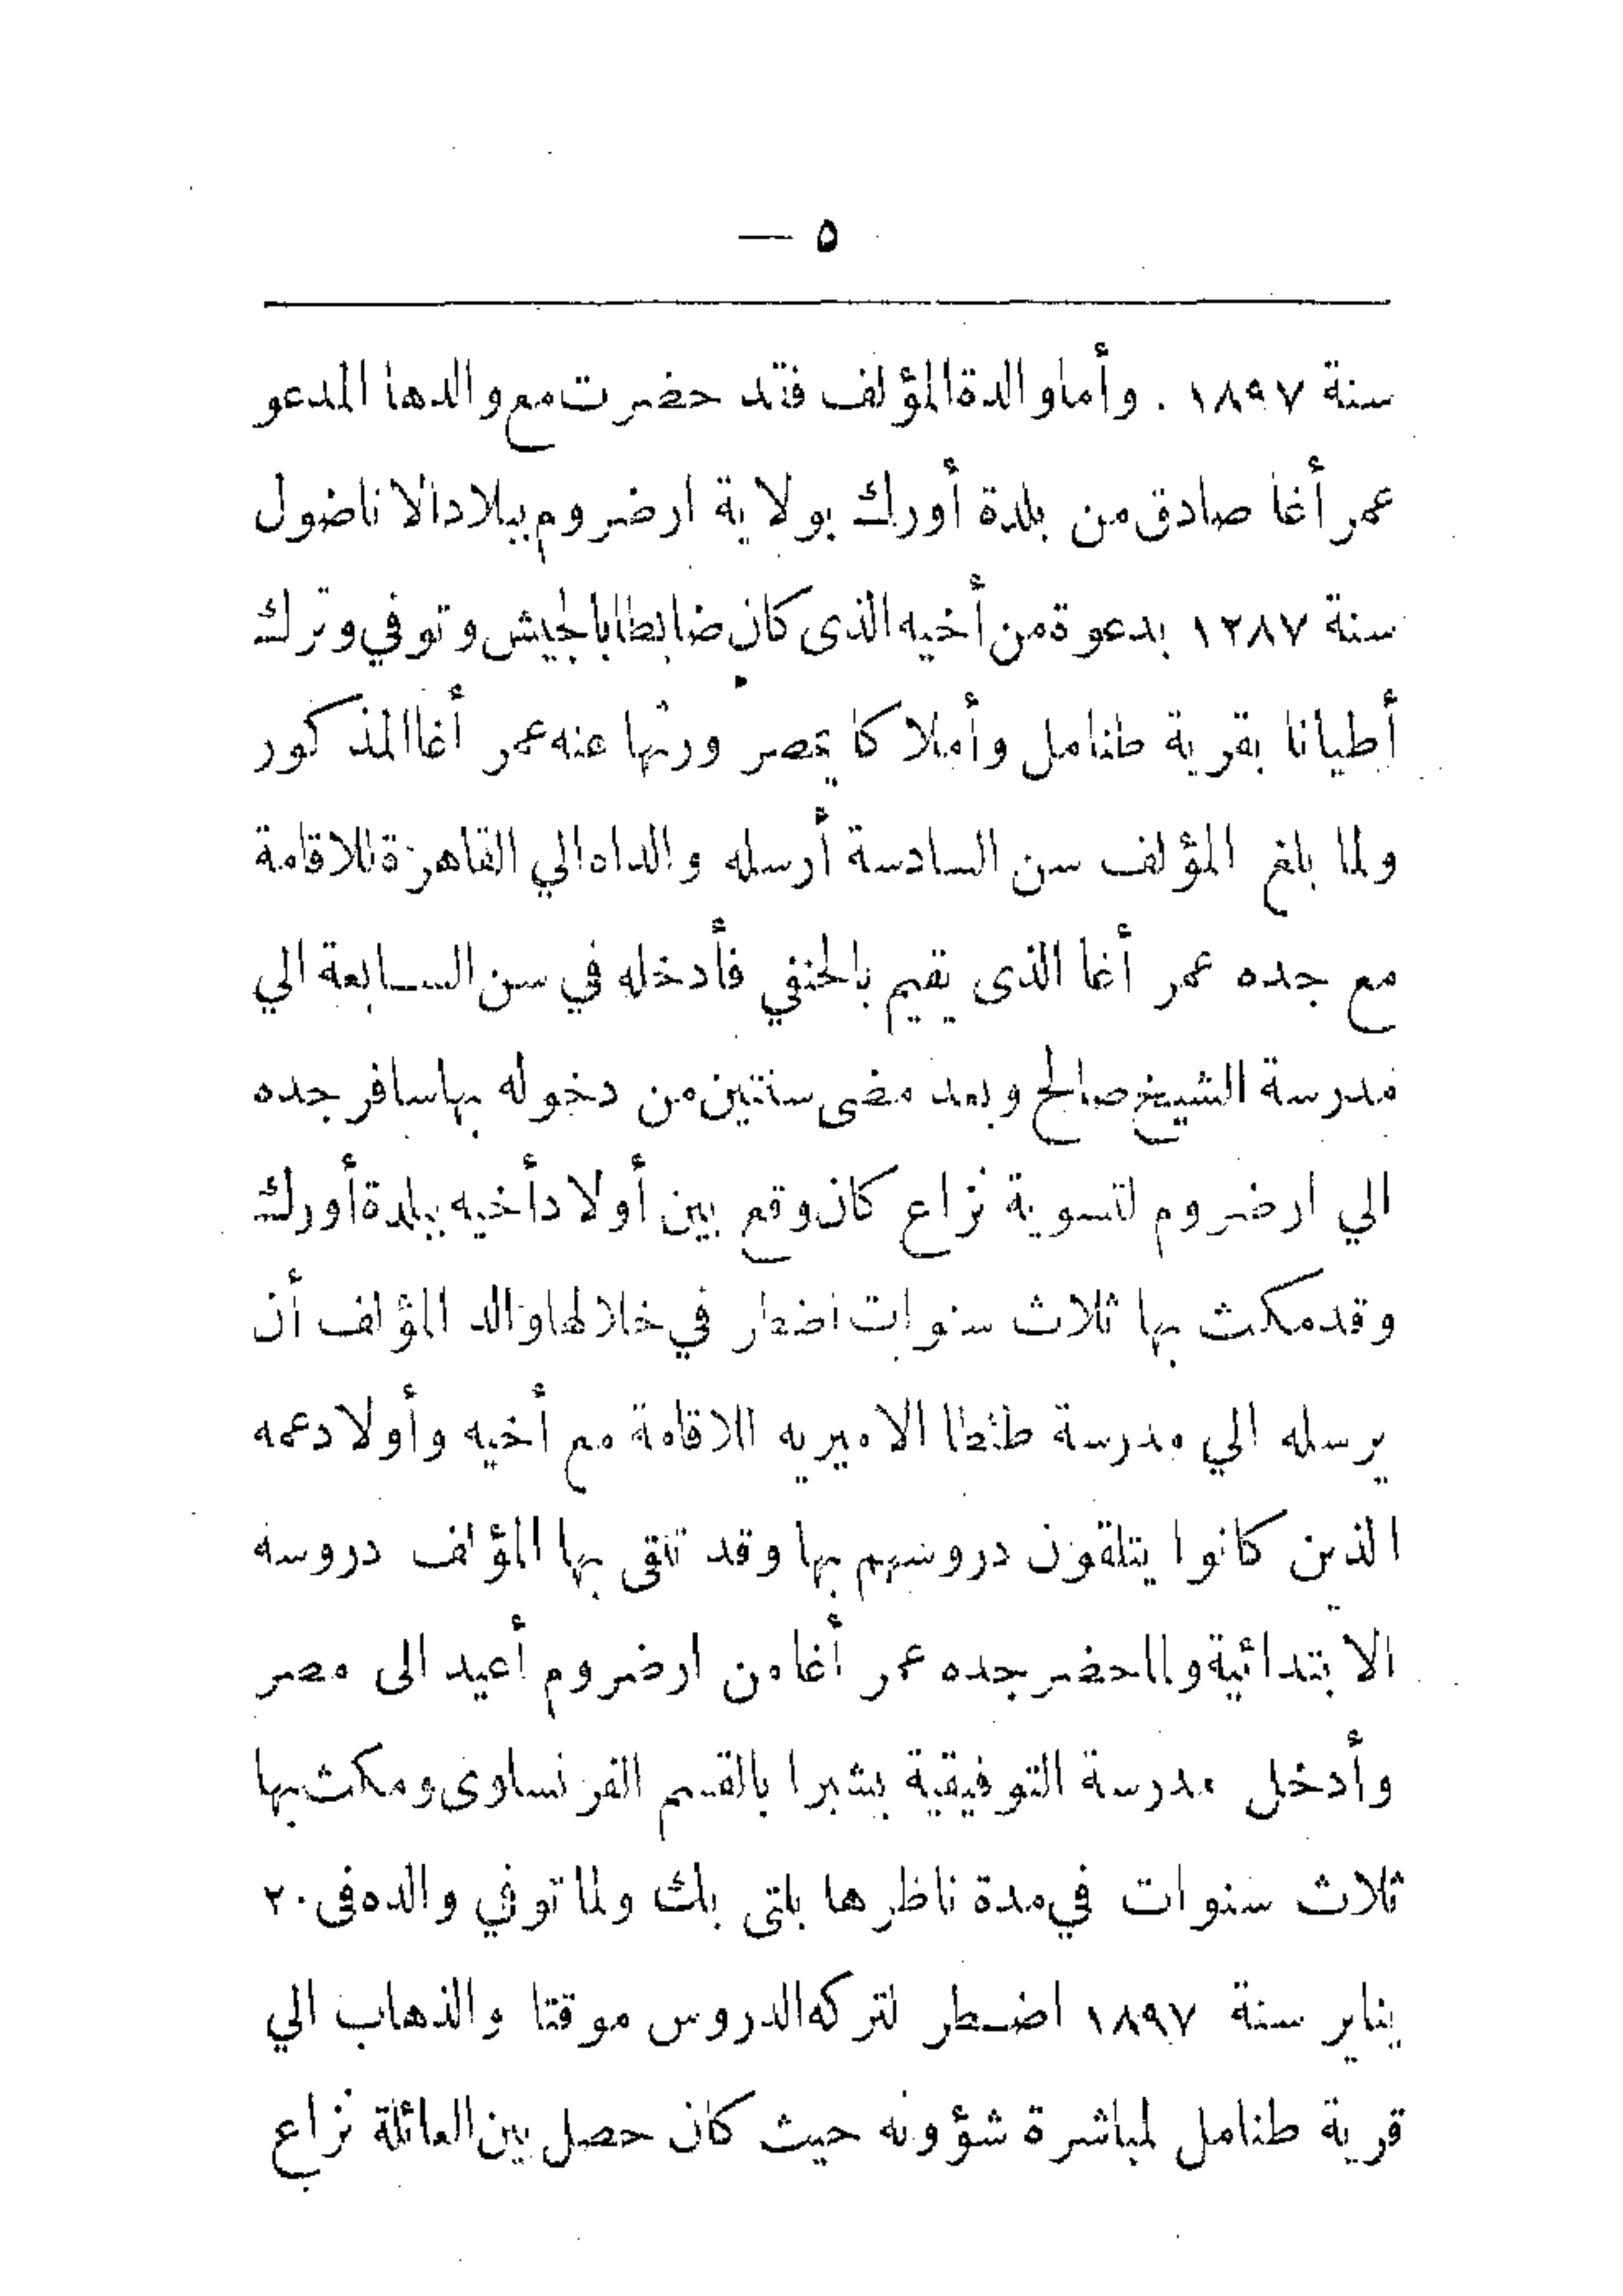 ٥ —
سنة ١٨٩٧ . وأما والدة المؤلف فقد حضرت مع والدها المدعو
عمر أغا صادق من بلدة أورك بولاية ارضروم ببلاد الاناضول
سنة ١٢٨٧ بدعوة من أخيه الذى كان ضابطا بالجيش وتوفي وترك
أطيانا بقرية طنامل وأملاكا بمصر ورثها عنه عمر أغا المذكور
ولما بلغ المؤلف سن السادسة أرسله والداه الي القاهرة للاقامة
مع جده عمر أغا الذى يقيم بالحنفي فأدخله في سن السابعة الي
مدرسة الشيخ صالح وبعد مضى سنتين من دخوله بها سافر جده
الي ارضروم لتسوية نزاع كان وقع بين أولاد أخيه ببلدة أورك
وقد مكث بها ثلاث سنوات اضطر في خلالها والد المؤلف أن
يرسله الي مدرسة طنطا الاميريه للاقامة مع أخيه وأولاد عمه
الذين كانوا يتلقون دروسهم بها وقد تلقى بها المؤلف دروسه
الابتدائية ولما حضر جده عمر أغا من ارضروم أعيد الى مصر
وأدخل مدرسة التوفيقية بشبرا بالقسم الفرنساوى ومكث بها
ثلاث سنوات في مدة ناظرها بلتى بك ولما توفي والده فى ٢٠
يناير سنة ١٨٩٧ اضطر لتركه الدروس موقتا والذهاب الي
قرية طنامل لمباشرة شؤونه حيث كان حصل بين العائلة نزاع